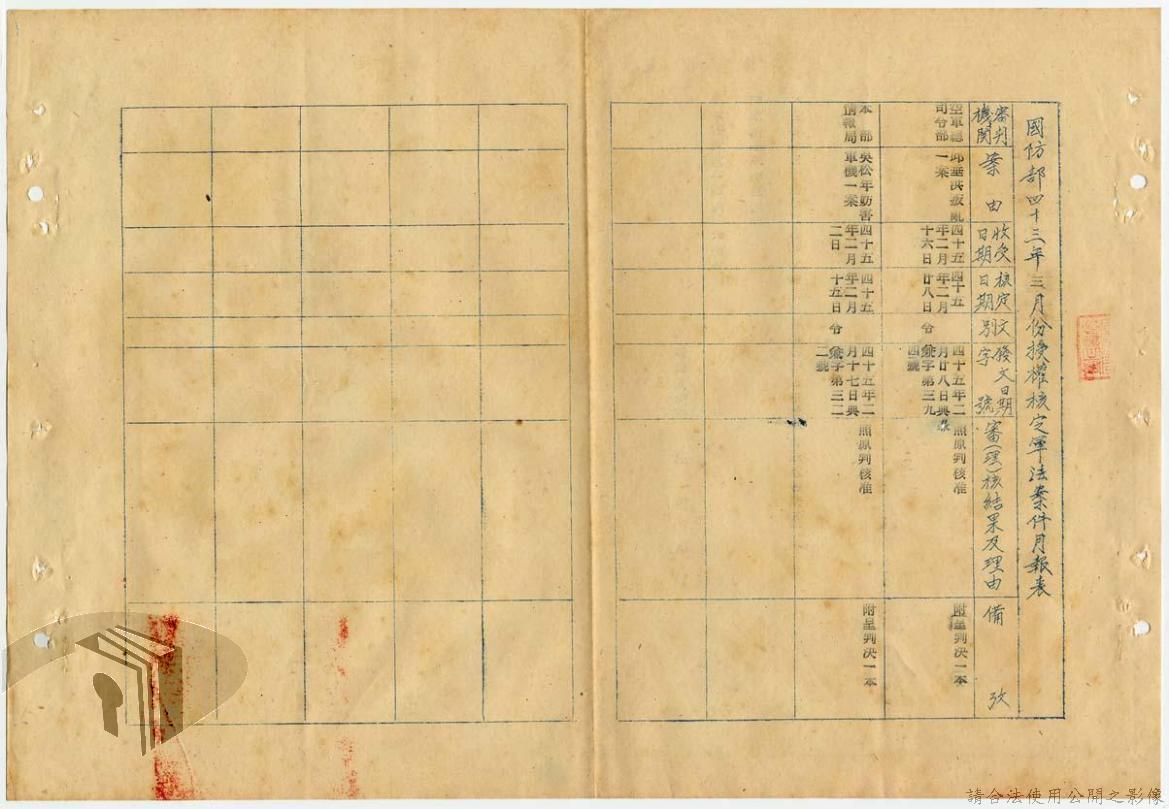 國防部四十三年三月份授權核定軍法案件月報表
審判
機關
案由
收受
日期
核定
日期
文
別
發文日期
字號
審(擬)核結果及理由
備攷
空軍總
司令部
邱垂洪叛亂
一案
四十五
年二月
十六日
四十五
年二月
廿八日
令
四十五年二
月廿八日典
字第三九
四號
照原判核准
附呈判決一本
本部
情報局
吳松年妨害
軍機一案
四十五
年二月
二日
四十五
年二月
十五日
令
四十五年二
月十七日典
字第三二
二號
照原判核准
附呈判決一本
請合法使用公開之影像